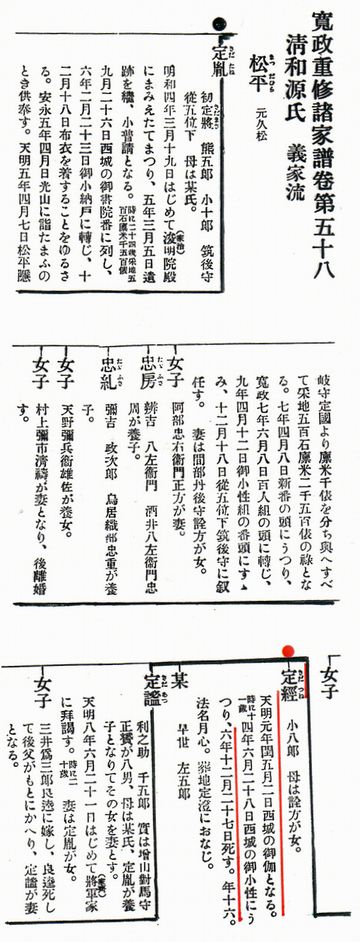 寛政重修諸家譜卷第五十八
清和源氏 義家流
松平 元久松
定胤
初定將 熊五郎 小十郎 筑後守
從五位下 母は某氏。
明和四年三月十九日はじめて浚明院殿
にまみえたてまつり、五年三月五日遺
跡を繼、小普請となる。
九月二十六日西城の御書院番に列し、
六年二月二十三日御小納戸に轉じ、十
二月十八日布衣を着することをゆるさ
る。安永五年四月日光山に詣たまふの
とき供奉す。天明五年四月七日松平隱
岐守定國より廩米千俵を分ち與へすべ
て采地五百石廩米二千五百俵の祿とな
る。七年四月八日新番の頭にうつり、
寛政七年六月八日百人組の頭に轉じ、
九年四月十二日御小性組の番頭にす
み、十二月十八日從五位下筑後守に叙
任す。 妻は間部丹後守詮方が女。
女子 阿部忠右衞門正方が妻。
忠房
辨吉 八左衞門 酒井八左衞門忠
周が養子。
忠虬
彌吉 政次郎 鳥居織部忠重が養
子。
女子 天野彌兵衞雄佐が養女。
女子
村上彌市清禱が妻となり、後離婚
す。
女子
定經
小八郎 母は詮方が女。
天明元年閏五月二日西城の御伽となる。
時に十一歳 四年六月二十八日西城の御小性にう
つり、六年十二月二十七日死す。年十六。
法名月心。葬地定澄におなじ。
某 早世 左五郎
定謐
利之助 千五郎 實は增山對馬守
正贇が八男、母は某氏、定胤が養
子となりてその女を妻とす。
天明八年六月二十一日はじめて將軍家
に拜謁す。 妻は定胤が女。
女子
三井爲三郎良逵に嫁し、良逵死し
て後父がもとにかへり、定謐が妻
となる。